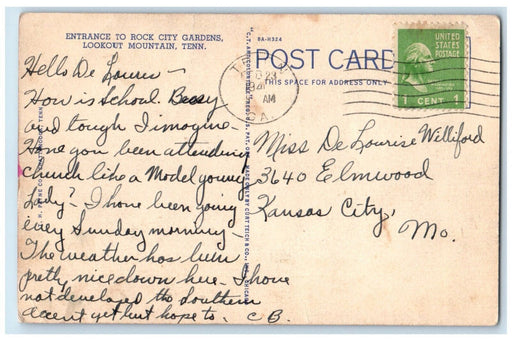 ENTRANCE TO ROCK CITY GARDENS,
LOOKOUT MOUNTAIN, TENN.
8A-H324
POST CARD
THIS SPACE FOR ADDRESS ONLY
UNITED
STATES
POSTAGE
1 CENT 1
AM
GA.
Hello De Lourise —
How is School. Busy
and tough I imagine —
Have you been attending
church like a Model young
Lady? — I have been going
every Sunday morning —
The weather has been
pretty nice down here — I have
not developed the Southern
accent yet but hope to. — C B.
Miss De Lourise Williford
3640 Elmwood
Kansas City,
Mo.